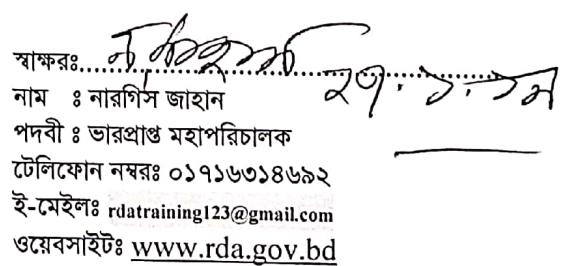 স্বাক্ষরঃ..............................................
নাম ঃ নারগিস জাহান
পদবী ঃ ভারপ্রাপ্ত মহাপরিচালক
টেলিফোন নম্বরঃ ০১৭১৬৩১৪৬৯২
ই-মেইলঃ rdatraining123@gmail.com
ওয়েবসাইটঃ www.rda.gov.bd